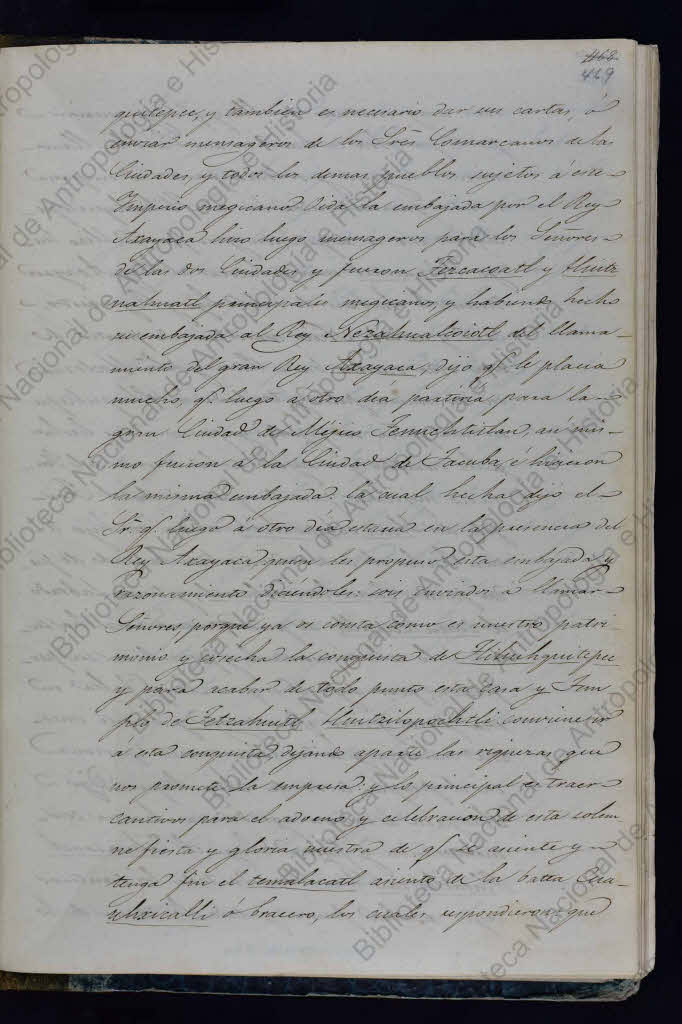 468
469
quitepec, y tambien es necesario dar sus cartas, ó
enviar mensageros de los Sres Comarcanos de las
Ciudades, y todos los demas pueblos sujetos á este
Imperio megicano. Oida la embajada por el Rey
Axayaca hizo luego mensageros para los Señores
de las dos Ciudades, y fueron Tezcacoatl y Huitz
nahuatl principales megicanos, y habiendo hecho
su embajada al Rey Nezahualcoiotl del llama-
miento del gran Rey Axayaca, dijo q.e le placia
mucho q.e luego a otro dia partiria para la
gran Ciudad de Mégico Tenuchtitlan, asi mis-
mo fueron a la Ciudad de Tacuba, é hicieron
la misma embajada. la cual hecha dijo el
Sr. q.e luego á otro dia estaria en la presencia del
Rey Axayaca, quien les propuso esta embajada y
razonamiento diciéndoles: sois enviados á llamar
Señores, porque ya os consta como es nuestro patri
monio y cosecha la conquista de Tliliuhquitepec
y para acabar de todo punto esta casa y Tem-
plo de Tetzahuitl Huitzilopochtli conviene ir
á esta conquista, dejando aparte las riquezas que
nos promete la empresa: y lo principal es traer
cautivos para el adorno y celebracion de esta solem
ne fiesta y gloria nuestra de q.e se asiente y
tenga fin el temalacatl asiento de la batea Cua-
uhxicalli ó bracero, los cuales respondieron que
Biblioteca Nacional de Antropología e Historia